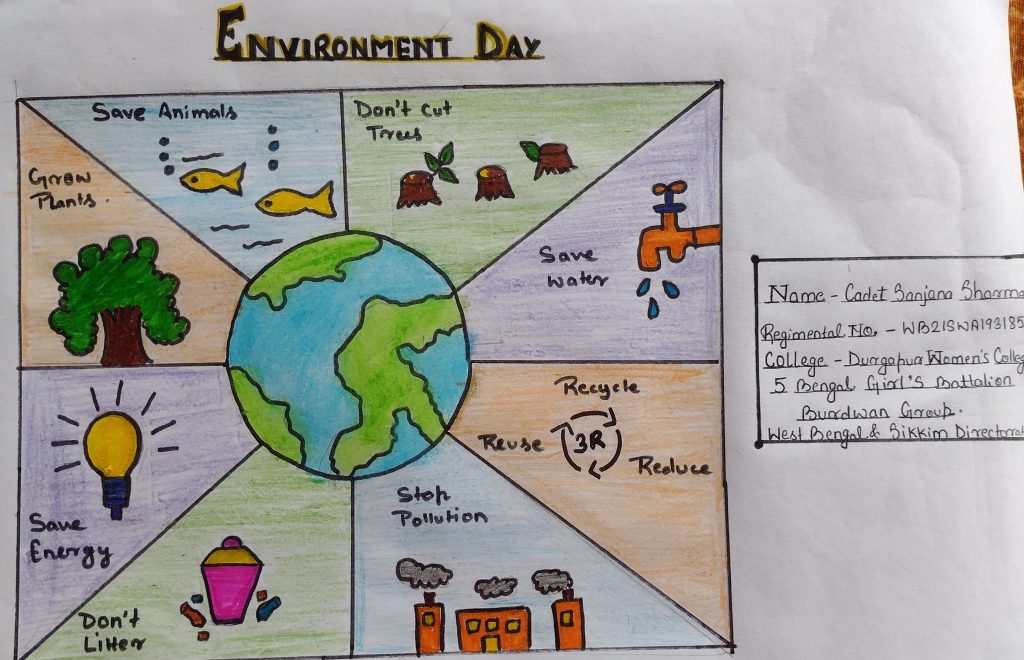 ENVIRONMENT DAY
Save Animals
Don't Cut
Trees
Grow
Plants.
Save
Water
Recycle
Reuse
3R
Reduce
Stop
Pollution
Save
Energy
Don't
Litter
Name - Cadet Sanjana Sharma
Regimental No. - WB21SWA193185
College - Durgapur Women's Colleg
5 Bengal Girl's Battalion
Burdwan Group.
West Bengal & Sikkim Directorat